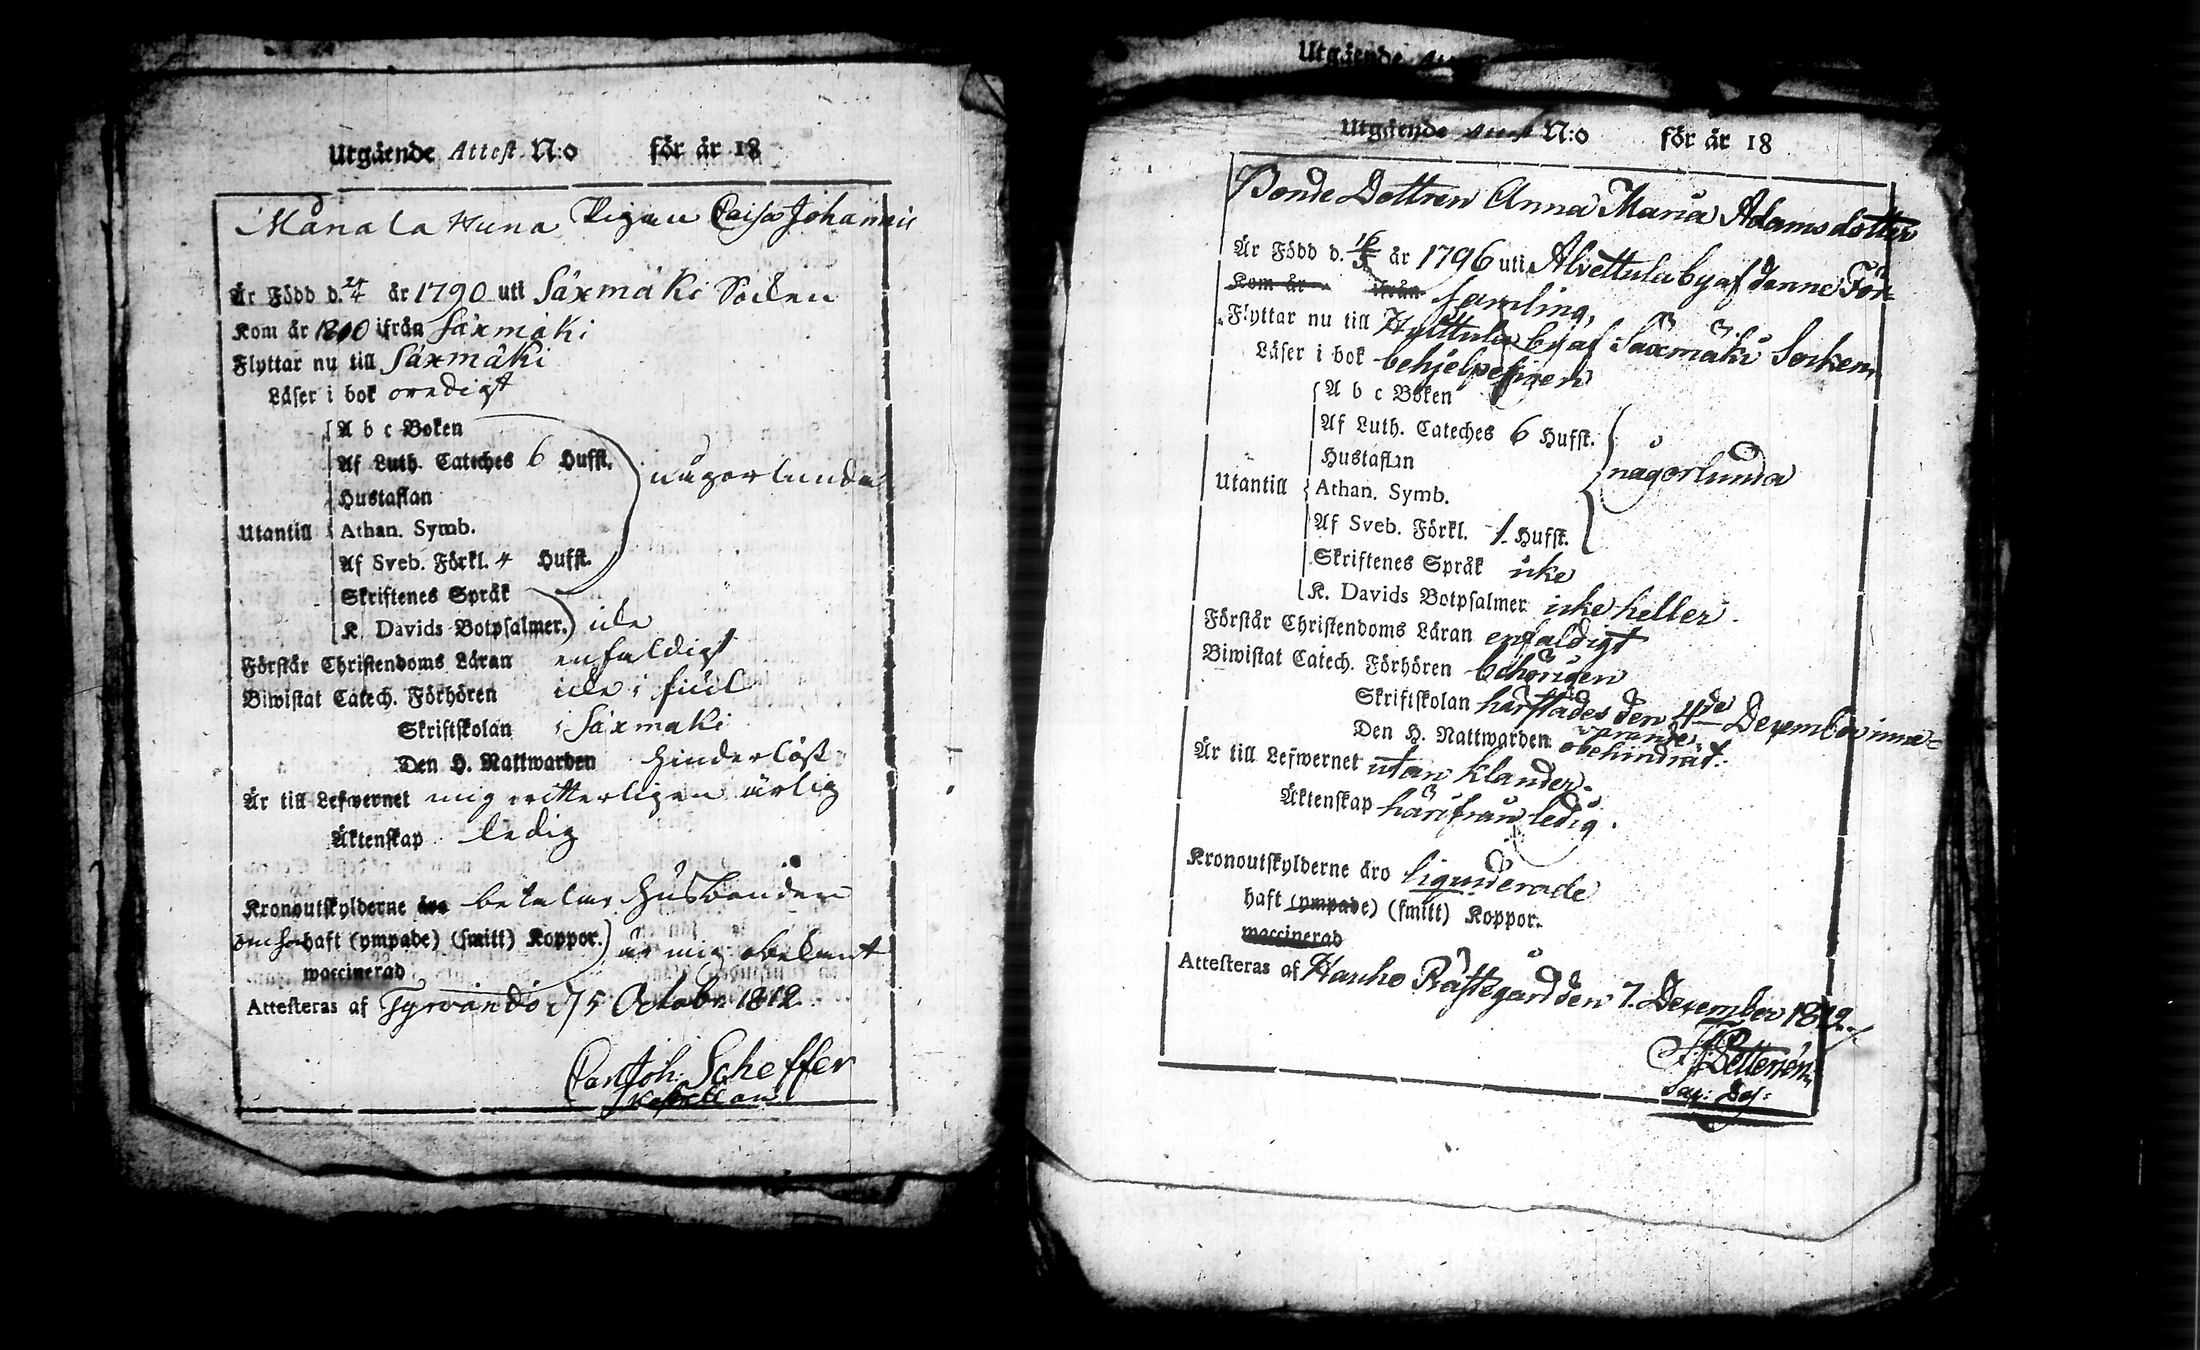 Utgående Attest N:o för år 18
Manala Huna Pigan Caisa Johannis
Är Född d. 24/4 år 1790 uti Säxmäki Socken
Kom år 1810 ifrån Säxmäki
Flyttar nu till Säxmäki
Läser i bok oredigt
A b c Boken
Af Luth. Cateches 6 Hufst.
någorlunda
Hustaflan
Utantill Athan. Symb.
Af Sveb. Förkl. 4 Hufst.
Skriftenes Språk
K. Davids Botpsalmer. icke
Förstår Christendoms Läran enfaldigt
Biwistat Catech. Förhören icke i fjol
Skriftskolan i Säxmäki
Den H. Nattwarden hinderlöst
Är till Lefwernet mig witterligen ärlig
Äktenskap ledig
Kronoutskylderne äro betalar Husbonden
om hon haft (ympade) (smitt) Koppor. är mig obekant
waccinerad
Attesteras af Tyrvändö d 5 Octobr 1812.
Carl Joh. Scheffer
Kapellan
Utgående
Utgående Attest N:o för år 18
Bonde Dottren Anna Maria Adamsdotter
Är Född d. år 1796 uti Alvettula by af denne För-
Kom år ifrån samling,
Flyttar nu till Hyttula by af Säxmäki Socken
Läser i bok behjelpeligen
A b c Boken
Af Luth. Cateches 6 Hufst.
Hustaflan
någorlunda
Utantill Athan. Symb.
Af Sveb. Förkl. 1 Hufst.
Skriftenes Språk icke
K. Davids Botpsalmer icke heller.
Förstår Christendoms Läran enfaldigt
Biwistat Catech. Förhören behörigen
Skriftskolan härstädes den 4de December inne-
varande.
Den H. Nattwarden obehindrat.
Är till Lefwernet utan klander.
Äktenskap härifrån ledig.
Kronoutskylderne äro liqviderade
haft (ympade) (smitt) Koppor.
waccinerad
Attesteras af Hauho Prästegård den 7. December 1812.